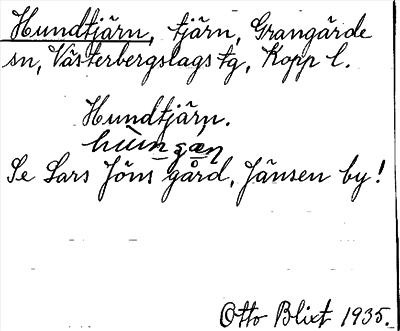 Hundtjärn, tjärn, Grangärde
sn, Västerbergslags tg, Kopp l.
Hundtjärn.
Se Lars Jöns gård, Jänsen by!
Otto Blixt 1935.